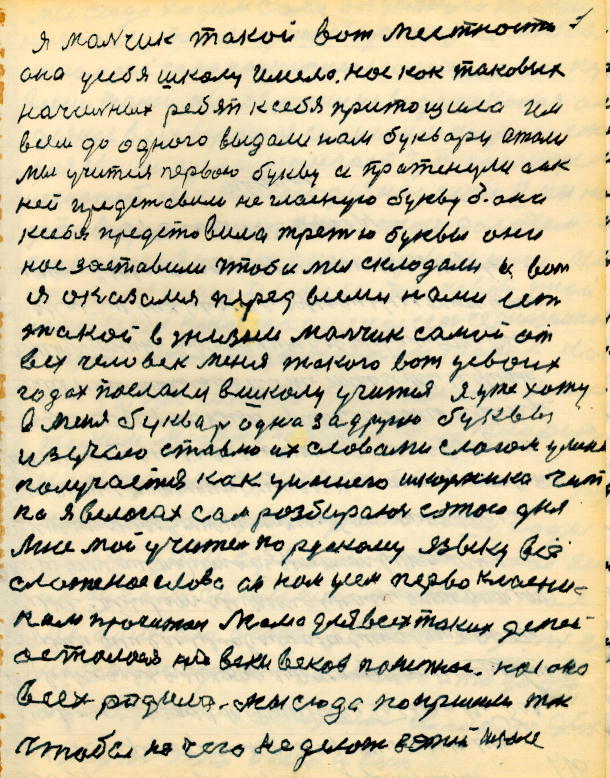 я малчик такой вот местность
она усебя школу имела. нас как таковых
начилных ребят ксебя притощила им
всем до одного выдали нам буквари стали
мы учится первою букву а протенули аак
ней представили не гласную букву б. она
ксебя предстовила третию буквы они
нас заставили чтобы мы склодали и вот
я оказался перед всеми нами есть
такой в жизни малчик самой от
всех человек меня такого вот усвоих
годах послали вшколу учится я уже хожу
в меня буквар одна задругою буквы
изучаю ставлю их словами слогом у меня
получается как уиннего школника чит
по явслогах сам розбираюс стого дня
мне мой учител порускому языку всё
сложеное слово ам нам усем перво класни=
кам прочитал мама длявсехтаких детей
осталася на веки веков понятная. нас она
всех радила. мы сюда попришли так
чтобы на чего не делат вэтий школе